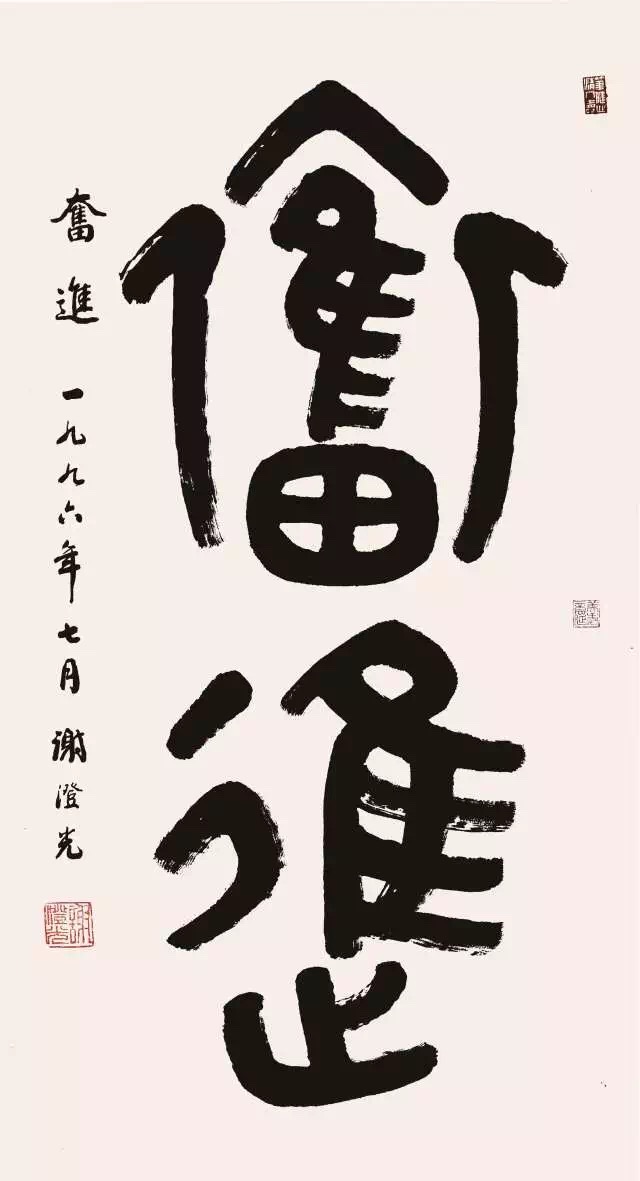 奮進
奮進 一九九六年七月 謝澄光
謝澄光